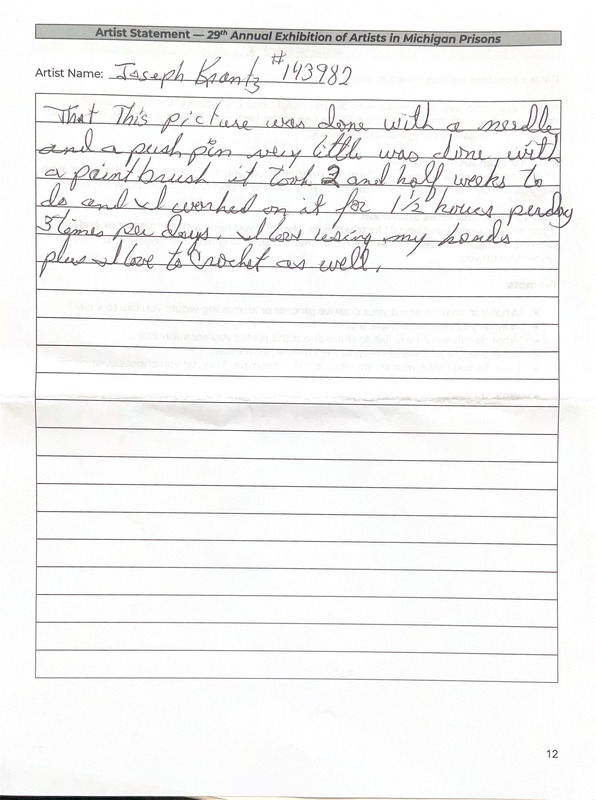 Artist Statement — 29th Annual Exhibition of Artists in Michigan Prisons
Artist Name: Joseph Krantz #143982
That This picture was done with a needle
and a push pin very little was done with
a paint brush it took 2 and half weeks to
do and I worked on it for 1½ hours perday
3 times per days. I love using my hands
plus I love to Crochet as well.
12